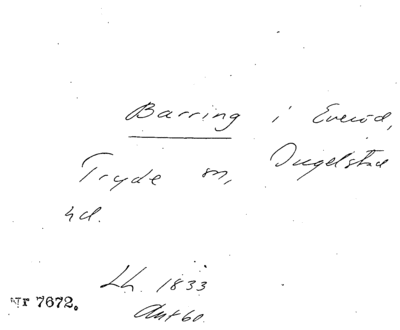 Barring i Everöd,
Tryde sn, Ingelstad
hd.
Lh. 1833
Nr 7672.